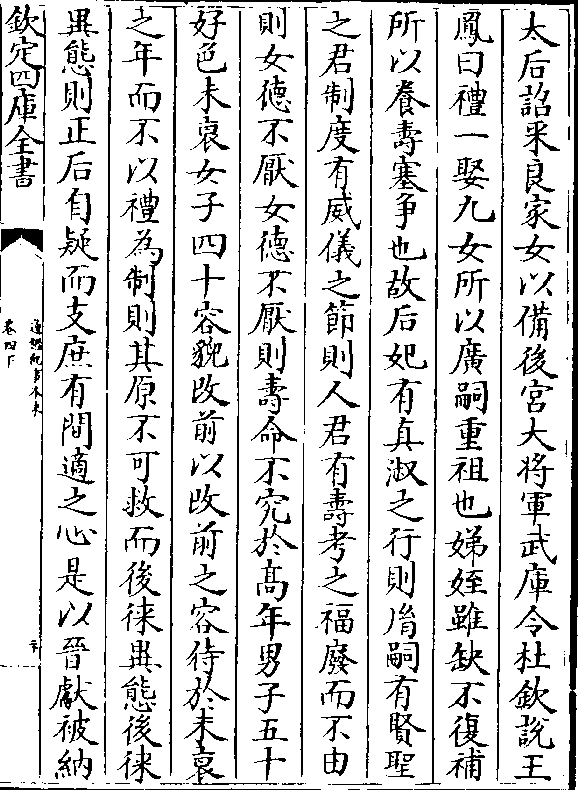 太后詔采良家女以備後宮大将軍武庫令杜欽說王
鳳曰禮一娶九女所以廣嗣重祖也娣姪雖缺不復補
所以養壽塞爭也故后妃有貞淑之行則胤嗣有賢聖
之君制度有威儀之節則人君有壽考之福廢而不由
則女徳不厭女徳不厭則壽命不究於髙年男子五十
好色未衰女子四十容貌改前以改前之容待於未衰
之年而不以禮為制則其原不可救而後徠異態後徠
異態則正后自疑而支庶有間適之心是以晉獻被納
欽定四庫全書
通鑑紀事本末
卷四下